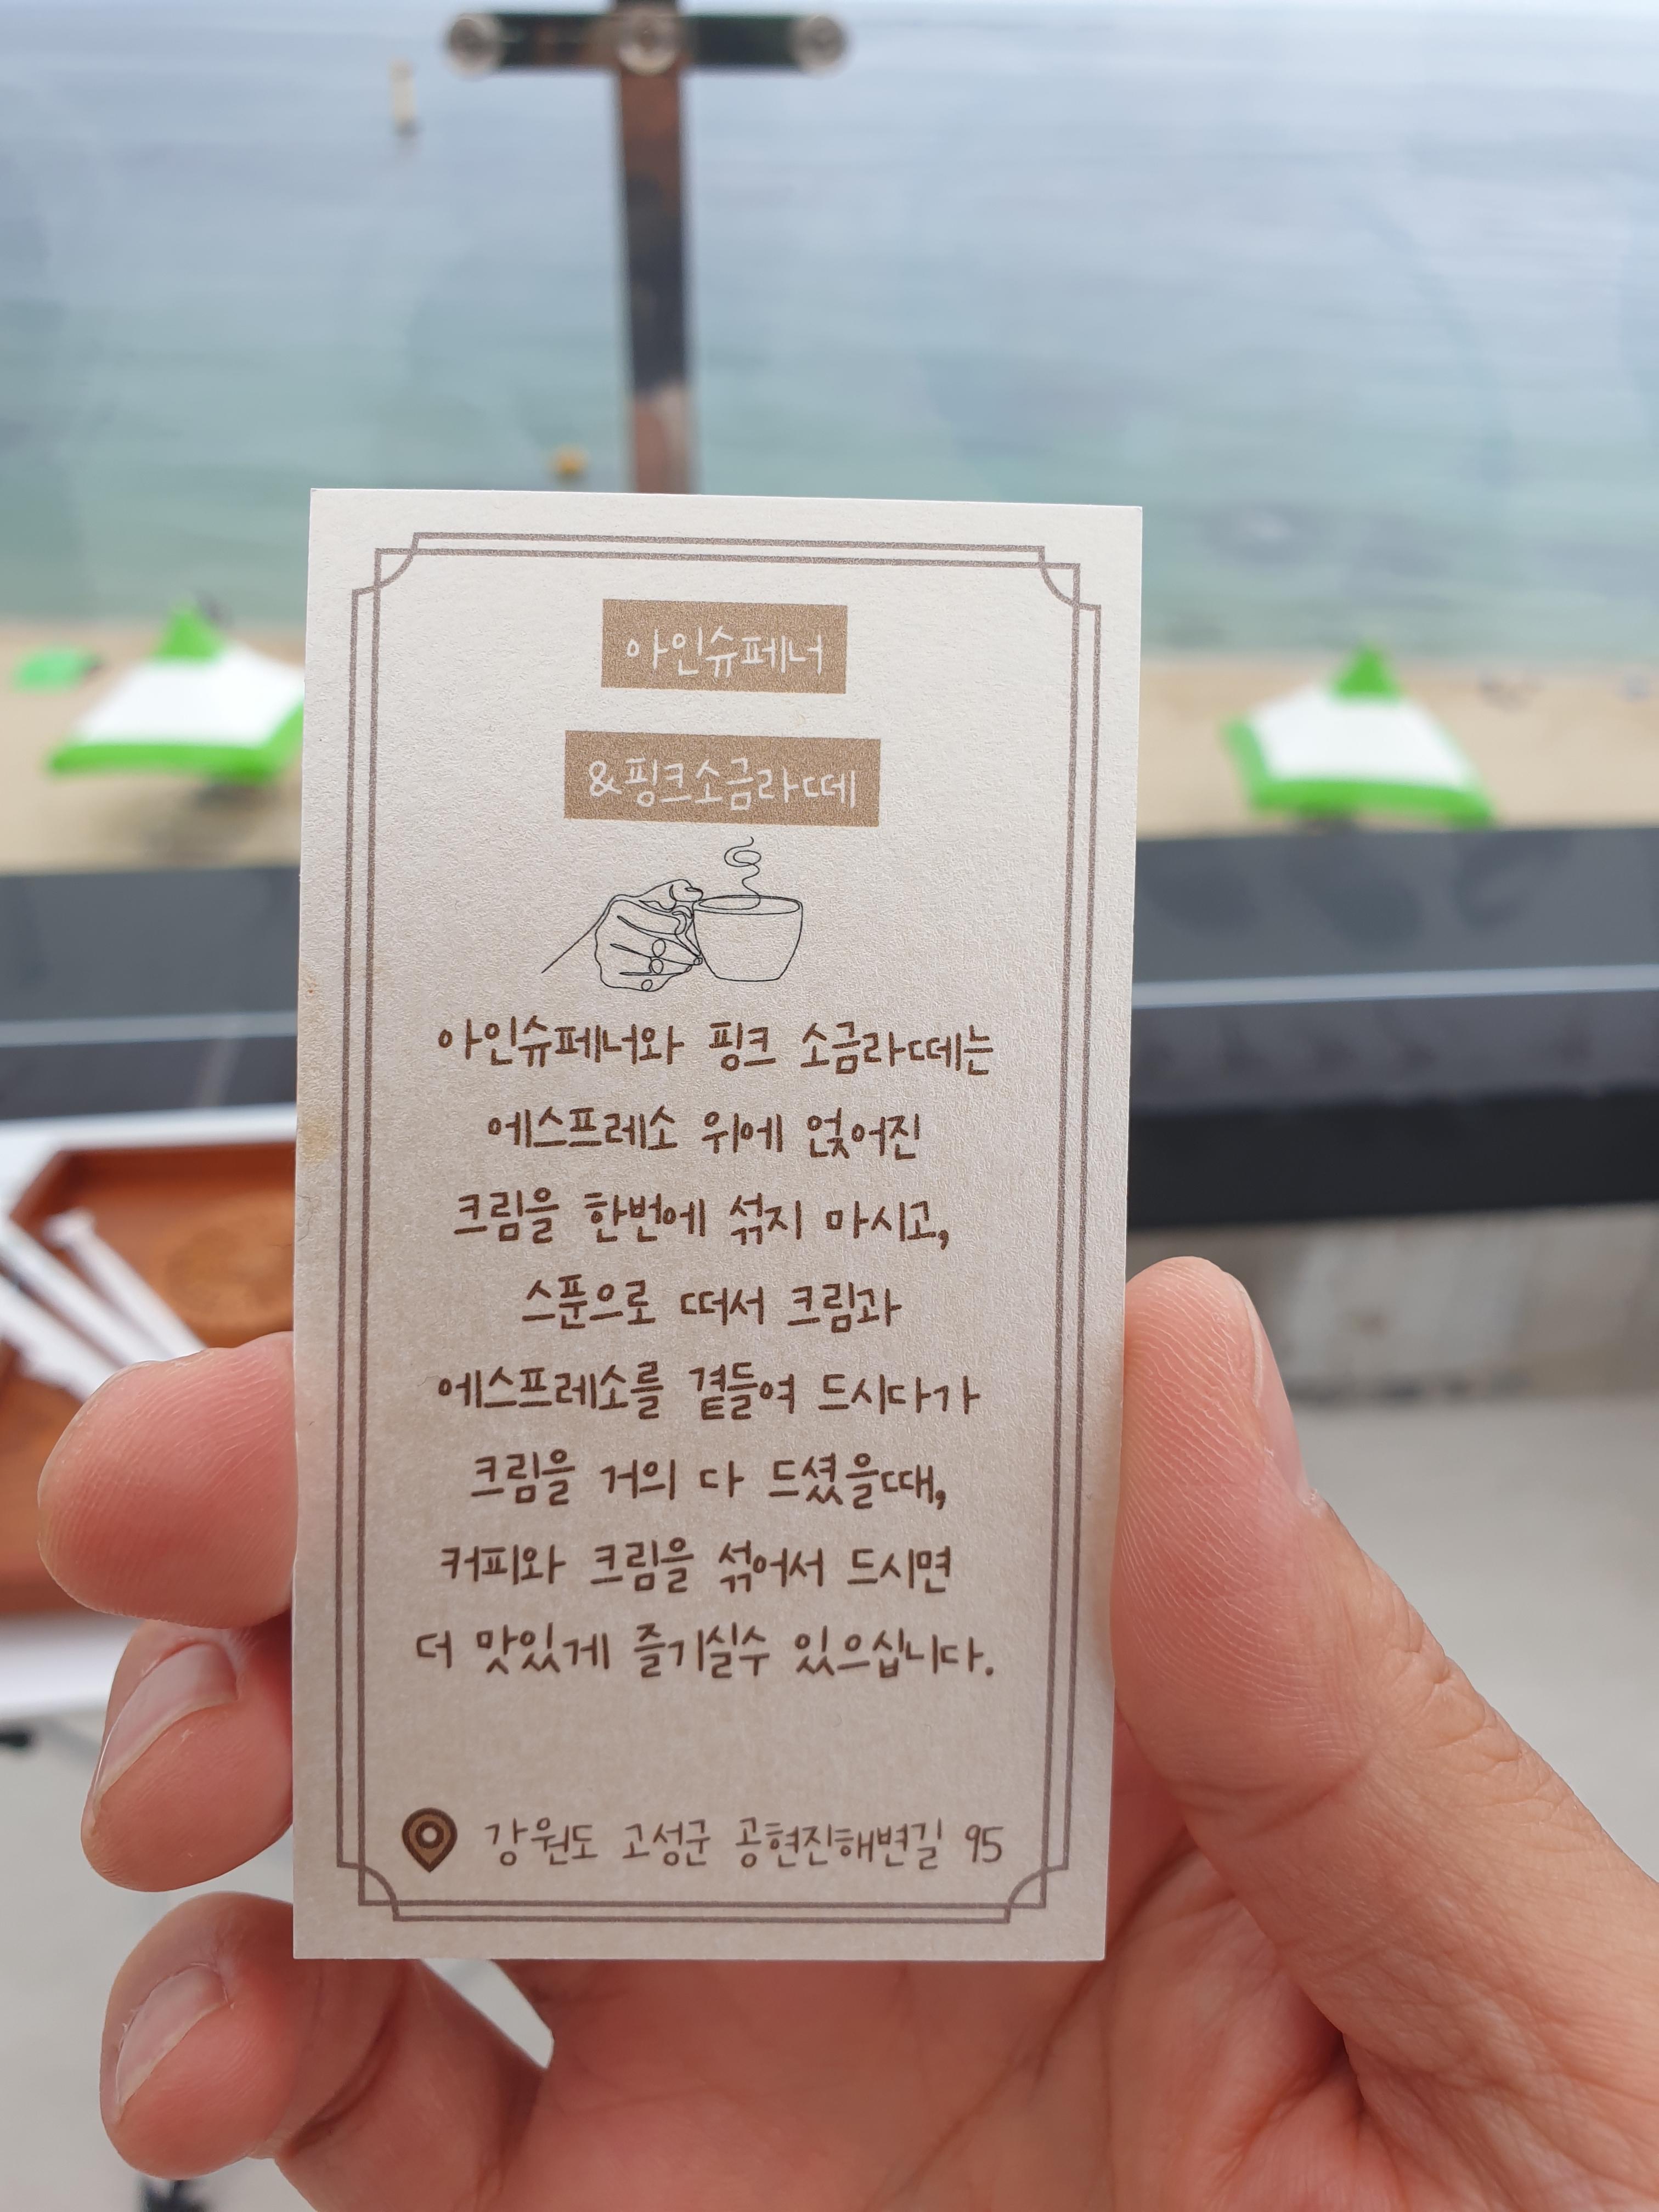 아인슈페너
&핑크소금라떼
아인슈페너와 핑크 소금라떼는
에스프레소 위에 얹어진
크림을 한번에 섞지 마시고,
스푼으로 떠서 크림과
에스프레소를 곁들여 드시다가
크림을 거의 다 드셨을때,
커피와 크림을 섞어서 드시면
더 맛있게 즐기실수 있으십니다.
강원도 고성군 공현진해변길 95